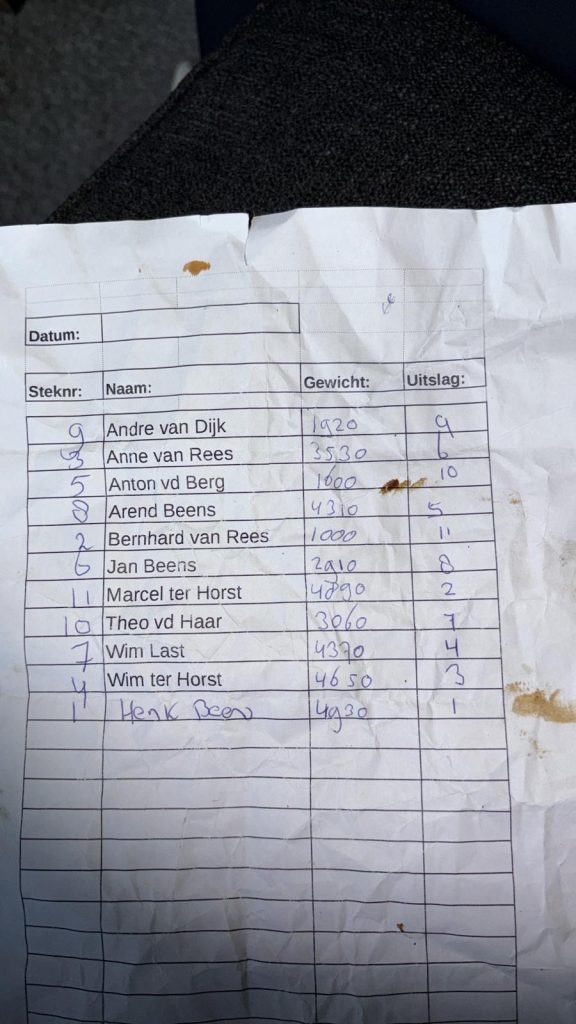 Datum:
Steknr: Naam: Gewicht: Uitslag:
9 Andre van Dijk 1920 9
3 Anne van Rees 3530 6
5 Anton vd Berg 1600 10
8 Arend Beens 4310 5
2 Bernhard van Rees 1000 11
6 Jan Beens 2910 8
11 Marcel ter Horst 4890 2
10 Theo vd Haar 3060 7
7 Wim Last 4370 4
4 Wim ter Horst 4650 3
1 Henk 4930 1